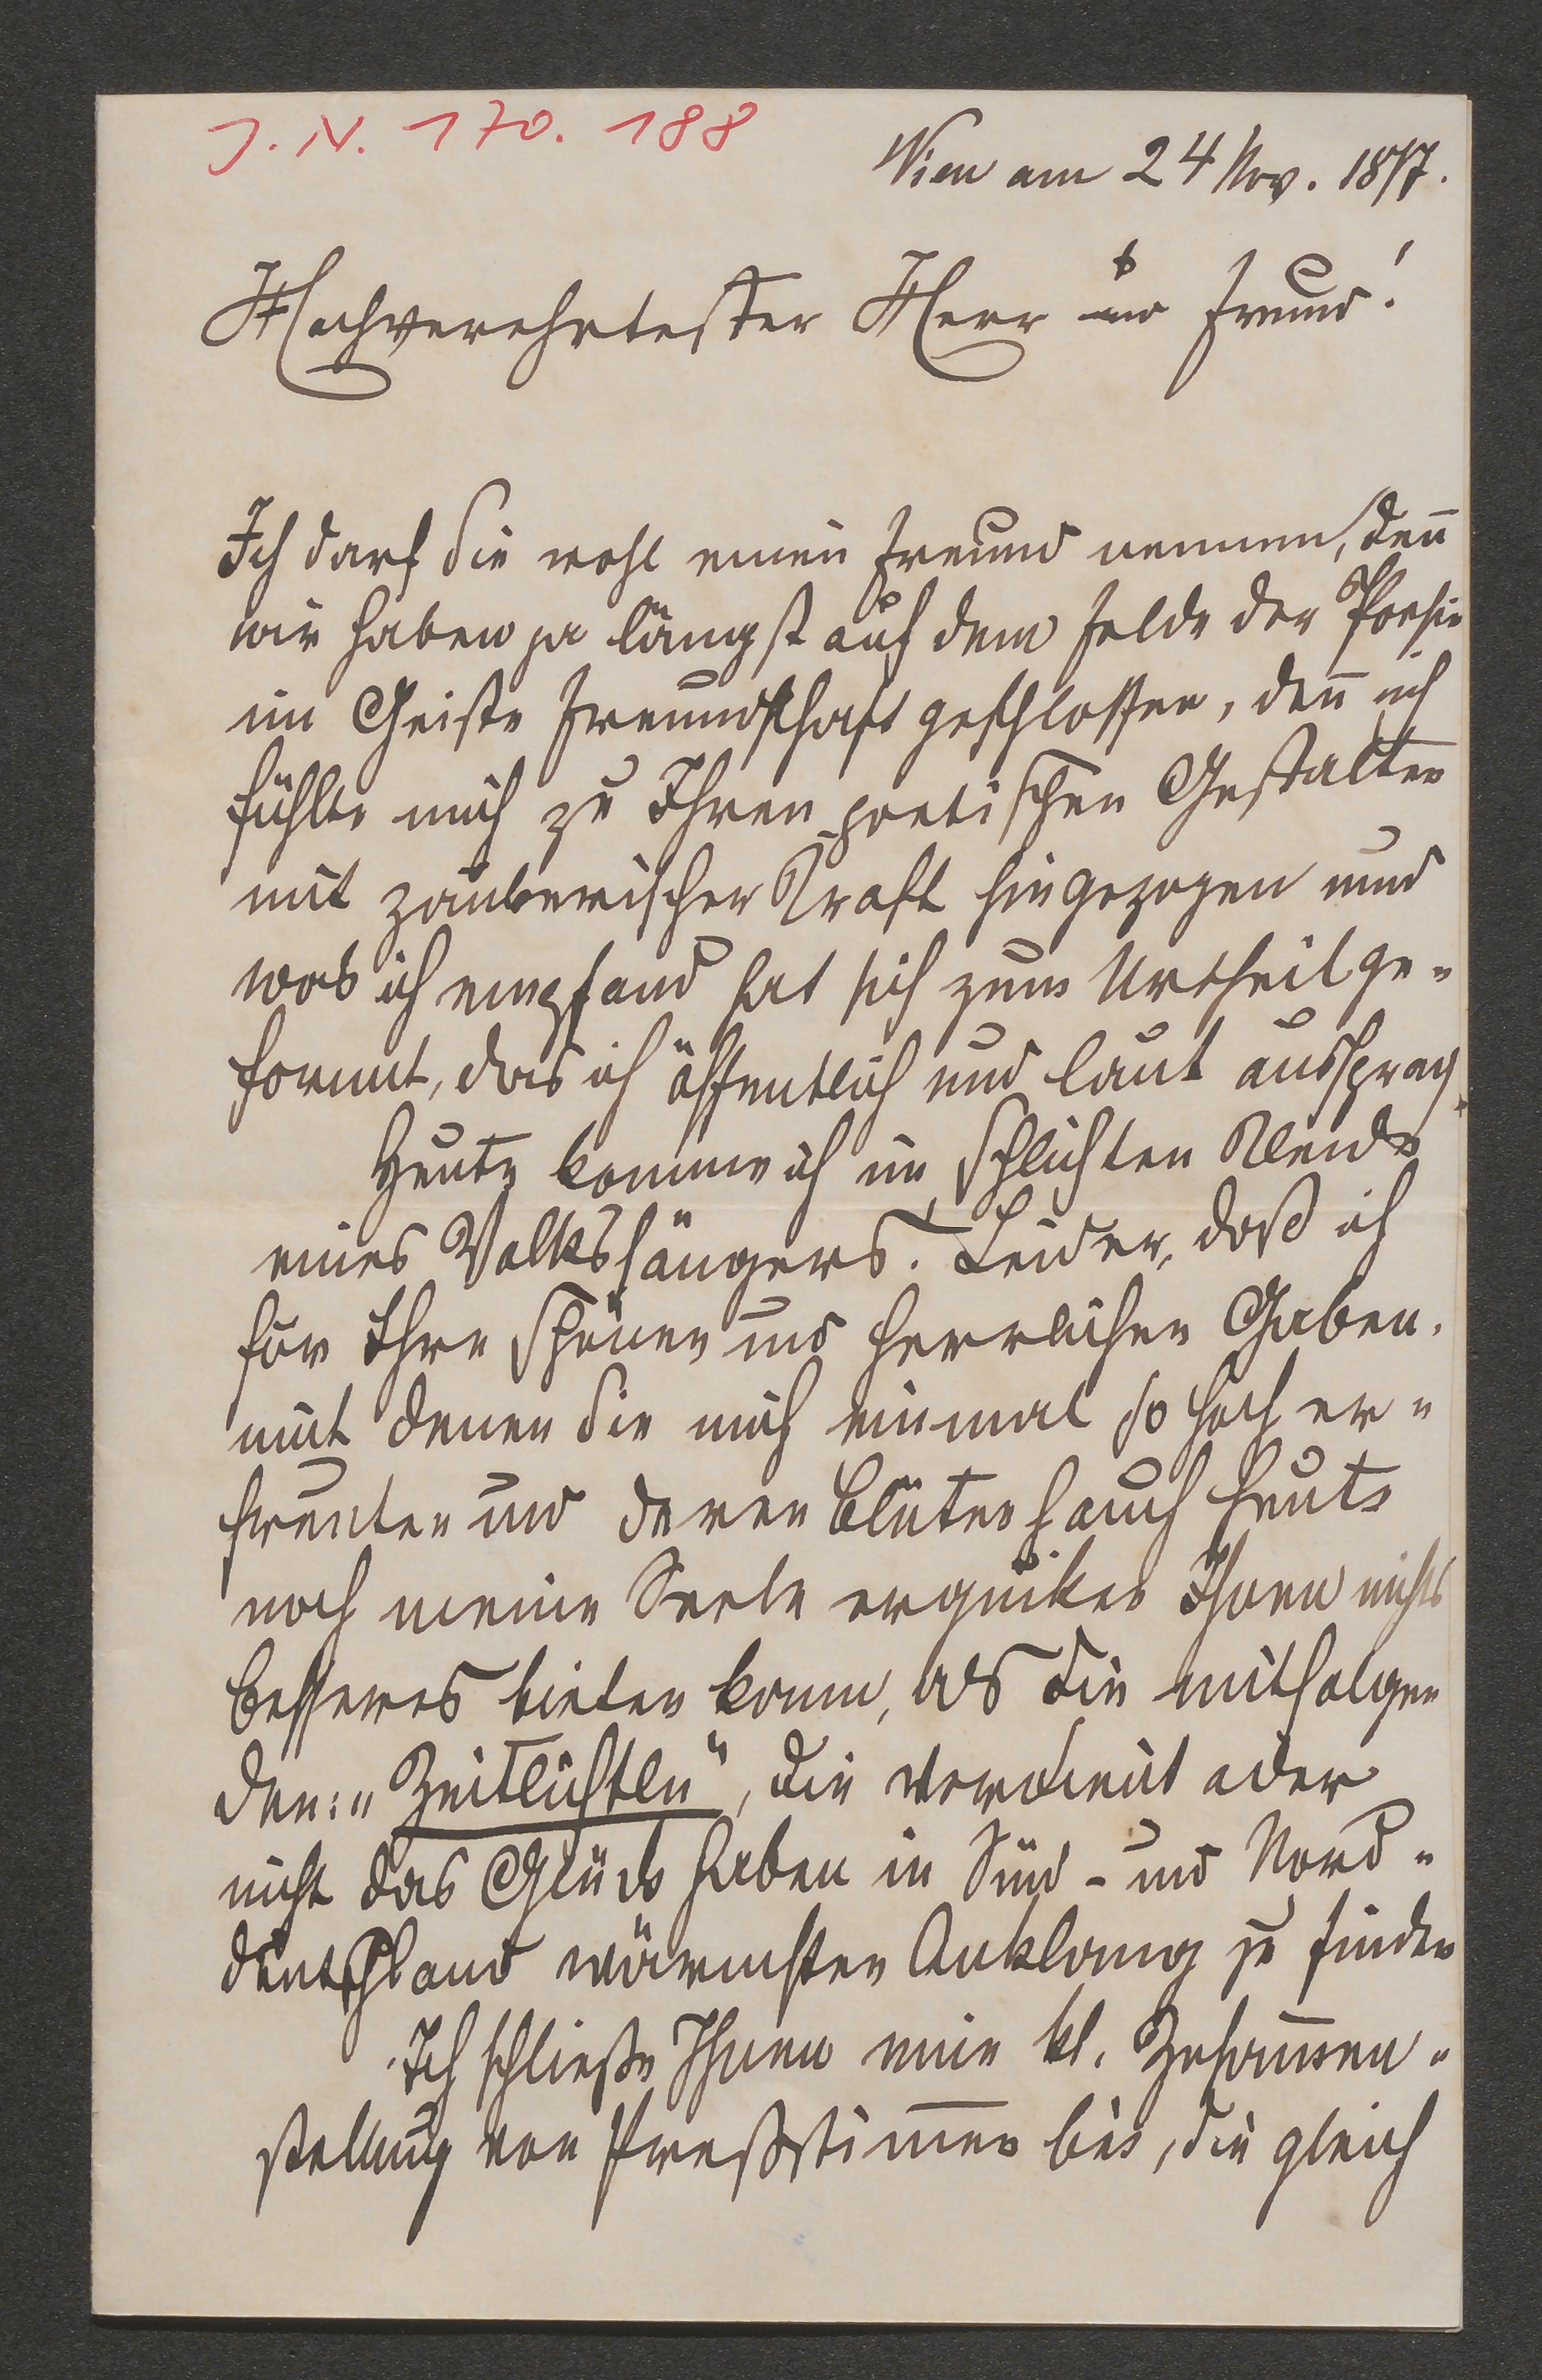 J. N. 170. 188
Wien am 24 Nov. 1877.
Hochverehrtester Herr und Freund!
Ich darf Sie wohl einen Freund nennen, den̄
wir haben ja längst auf dem Felde der Poesie
im Geiste Freundschaft geschlossen, den̄ ich
fühlte mich zu Ihren poetischen Gestalten
mit zauberischer Kraft hingezogen und
was ich empfand hat sich zum Urtheil ge-
formt, das ich öffentlich und laut aussprach.
Heute komme ich im schlichten Kleide
eines Volkssängers. Leider, daß ich
für Ihre schönen und herrlichen Gaben,
mit denen Sie mich einmal so hoch er-
freuten und deren Blütenhauch heute
noch meine Seele erquikes Ihnen nichts
besseres bieten kann, als die mitfolgen
den: „Zeitlichtln“, die verdient oder
nicht das Glück haben in Süd- und Nord-
deutschland wärmsten Anklang zu finden
Ich schließe Ihnen eine kl. Zusam̄en-
stellung von Preßstim̄en bei, die gleich